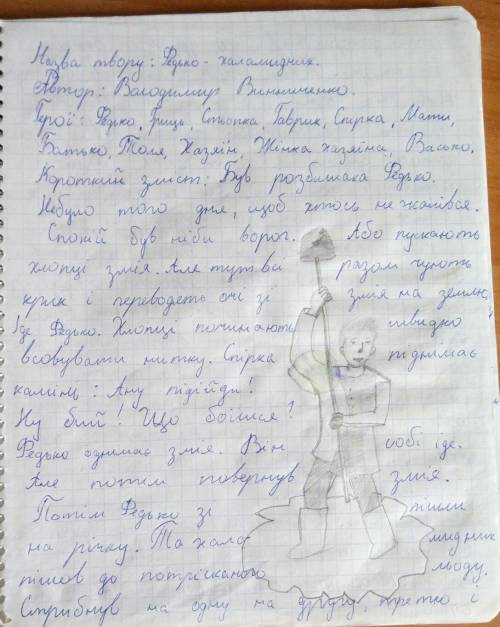 Назва твору: Федько-халамидник.
Автор: Володимир Винниченко.
Герої: Федько, Гриць, Стьопка, Гаврик, Спірка, Мати,
Батько, Толя, Хазяїн, Жінка хазяїна, Васько,
Короткий зміст: Був розбишака Федько.
Небуло того дня, щоб хтось не жалівся.
Спокій був ніби ворог. Або пускають
хлопці змія. Але тут всі разом чують
крик і переводеть очі зі змія на землю,
Іде Федько. Хлопці починають швидко
всовувати нитку. Спірка піднімає
камінь: Ану підійди!
Ну бий! Що боїшся?
Федько однімає змія. Він собі іде.
Але потім повернув змія.
Потім Федько зі пішли
на річку. Та хала мидник
пішов до потрісканого льоду.
Стрибнув на одну на другу, третю і